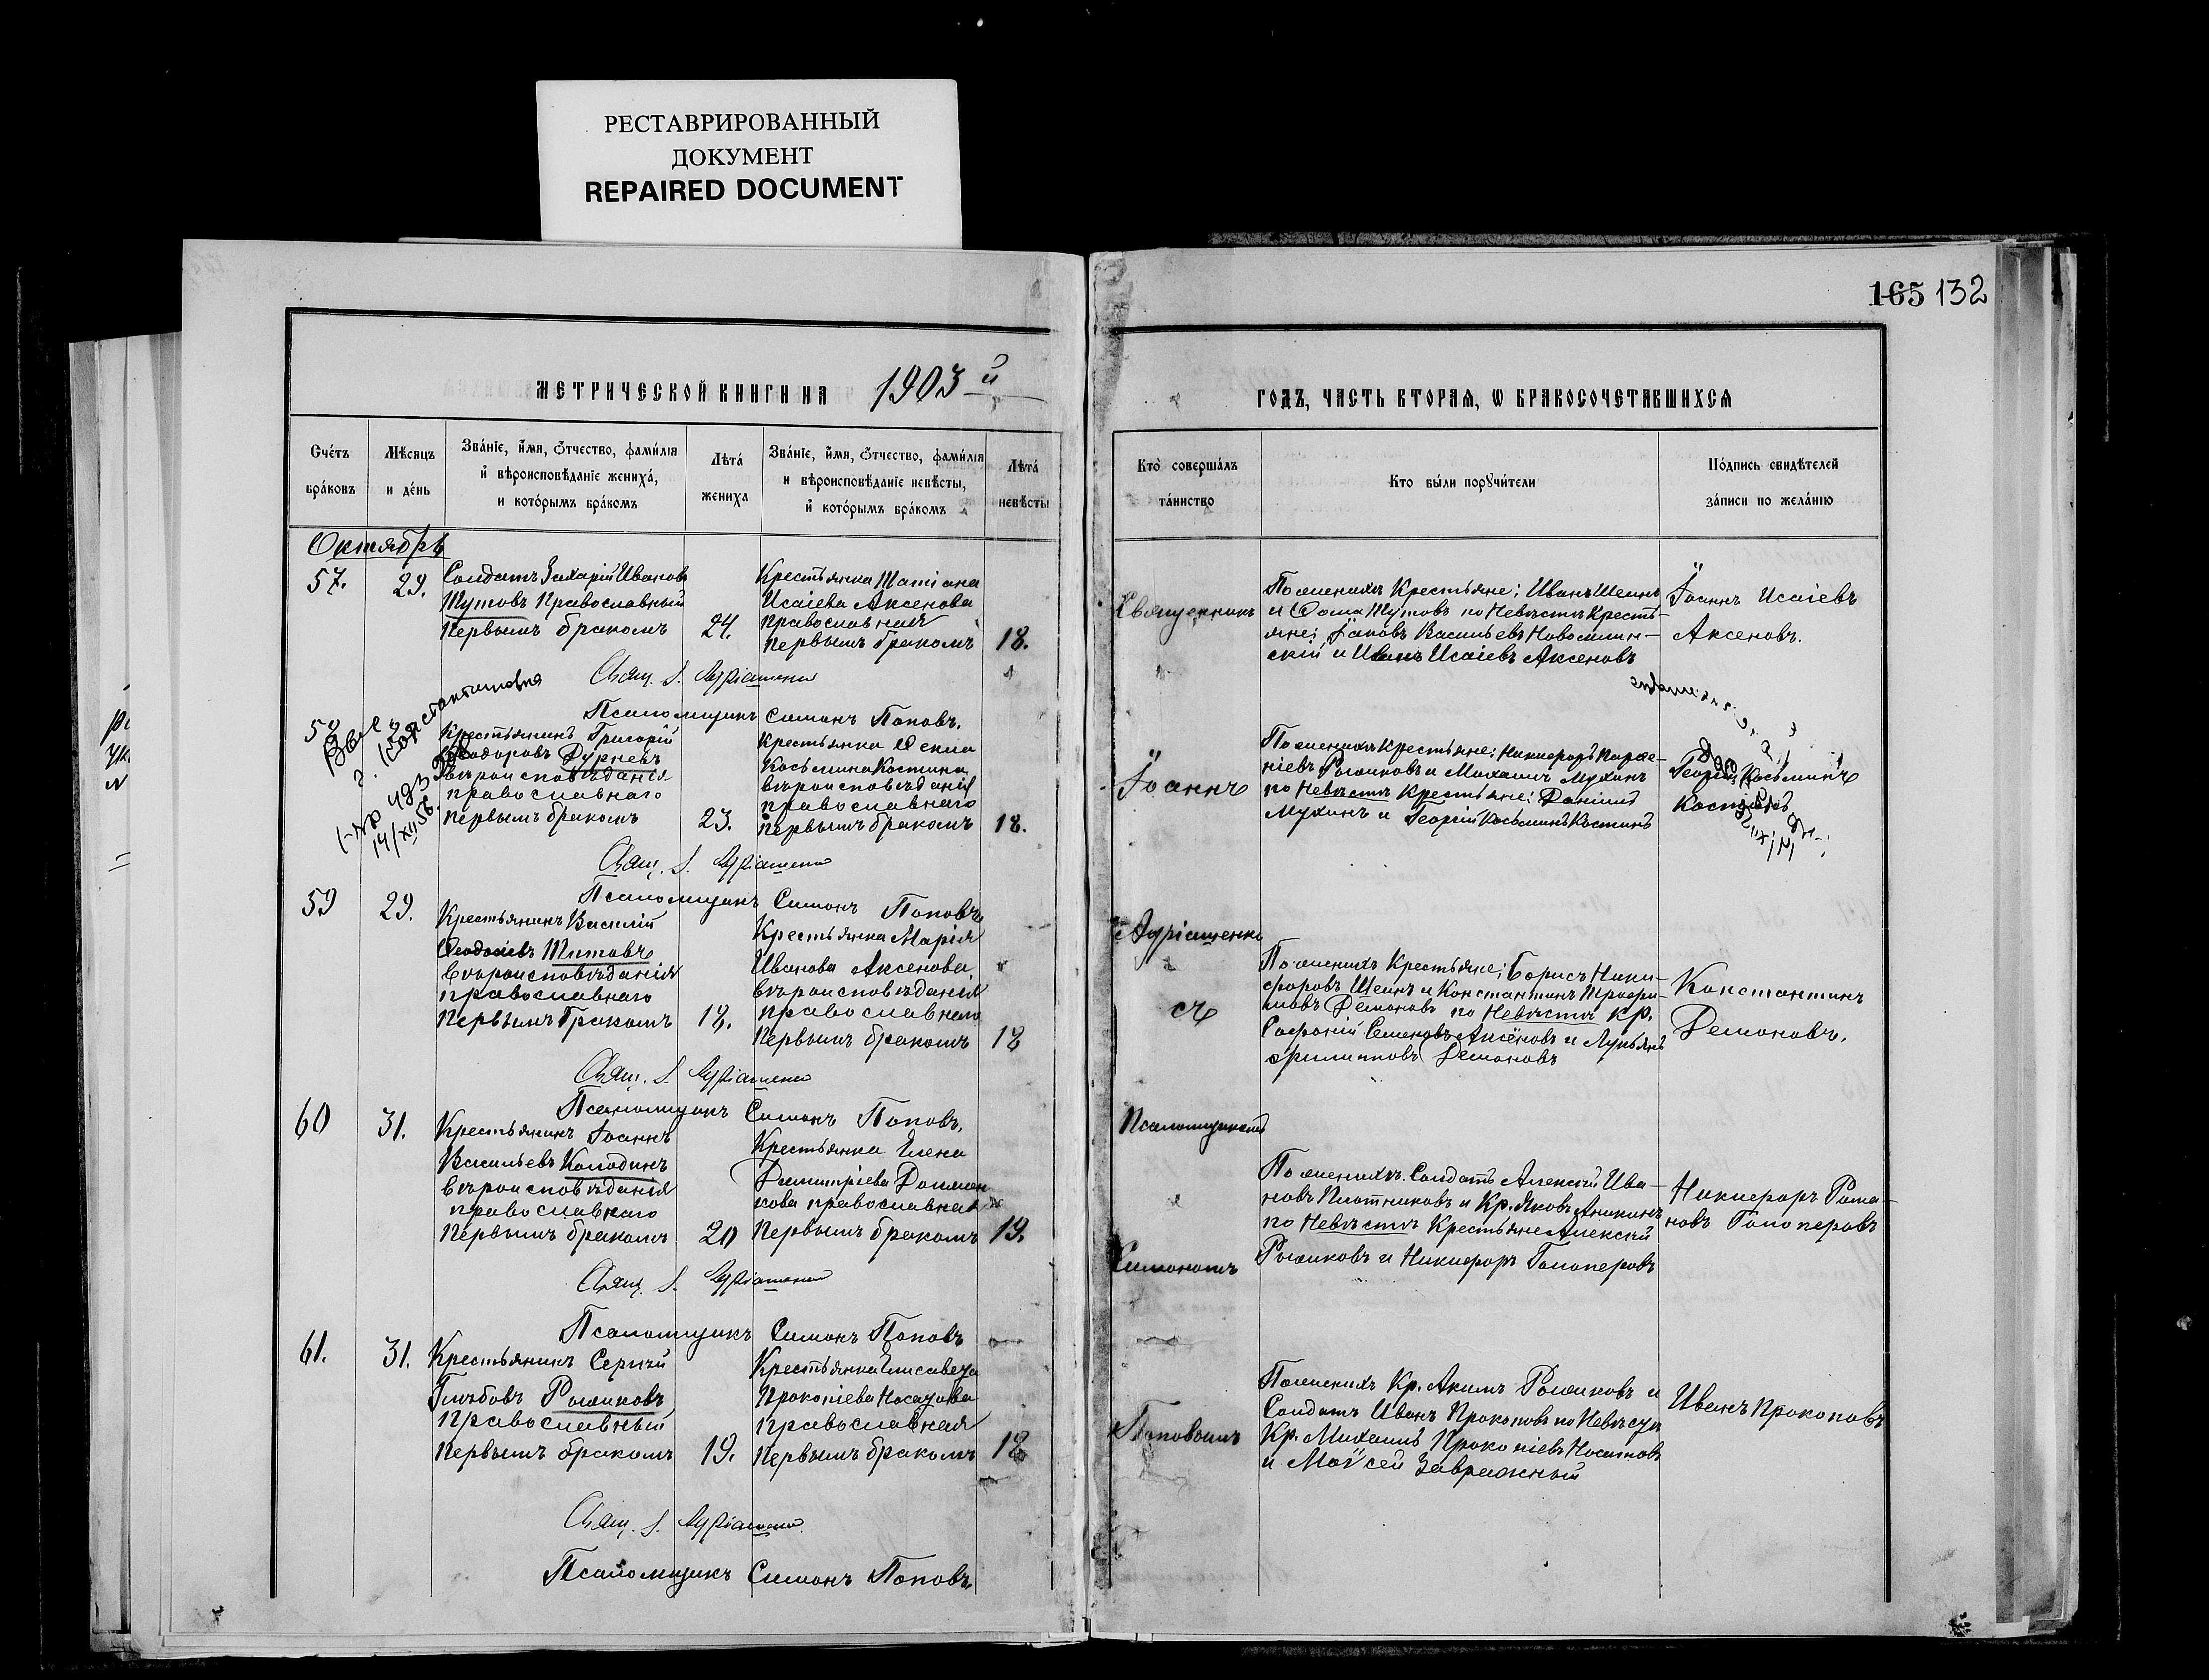 РЕСТАВРИРОВАННЫЙ
ДОКУМЕНТ
REPAIRED DOCUMENT
165 132
МЕТРИЧЕСКОЙ КНИГИ НА 1903 й
Счетъ браковъ
Мѣсяцъ и день
Званіе, имя, отчество, фамилія
и вѣроисповѣданіе жениха,
и которымъ бракомъ
Лѣта
жениха
Званіе, имя, отчество, фамилія
и вѣроисповѣданіе невѣсты,
и которымъ бракомъ
Лѣта
невѣсты
Октябрь
57. 29.
Солдатъ Захарій Ивановъ
Тутовъ Православный
Первымъ бракомъ 24.
Крестьянка Татіана
Исаіева Аксенова
православная
Первымъ бракомъ 18.
Свящ. І.
Псаломщикъ Симонъ Поповъ.
58
Крестьянинъ Григорій
Ѳеодоровъ Дурневъ
вѣроисповѣданія
православнаго
первымъ бракомъ 23.
Крестьянка
Косьмина Костина
вѣроисповѣданія
православнаго
Первымъ бракомъ 18.
г. Константиновка
14/XII 56.
Свящ. І.
Псаломщикъ Симонъ Поповъ
59 29.
Крестьянинъ Василій
Титовъ
Вѣроисповѣданія
православнаго
Первымъ бракомъ 18.
Крестьянка Марія
Иванова Аксенова
вѣроисповѣданія
православнаго
Первымъ бракомъ 18
Свящ. І.
Псаломщикъ Симонъ Поповъ,
60 31.
Крестьянинъ Іоаннъ
Васильевъ Колодинъ
вѣроисповѣданія
православнаго
Первымъ бракомъ 20
Крестьянка Елена
Димитріева
православная
Первымъ бракомъ 19.
Свящ. І.
Псаломщикъ Симонъ Поповъ
61. 31.
Крестьянинъ Сергій
Глѣбовъ Рыжиковъ
Православный
Первымъ бракомъ 19.
Крестьянка Елисавета
Прокопіева
Православная
Первымъ бракомъ 18
Свящ. І.
Псаломщикъ Симонъ Поповъ.
ГОДЪ, ЧАСТЬ ВТОРАЯ, Ѡ БРАКОСОЧЕТАВШИХСЯ
Кто совершалъ
таинство
Кто были поручители
Подпись свидѣтелей
записи по желанію
Священникъ
Іоаннъ
съ
Псаломщикомъ
Симономъ
Поповымъ
По женихѣ Крестьяне; Иванъ Шеинъ
и Ѳома Тутовъ по Невѣстѣ Кресть-
яне; Іаковъ Васильевъ
скій и Иванъ Исаіевъ Аксеновъ
Іоаннъ Исаіевъ
Аксеновъ.
По женихѣ Крестьяне; Никифоръ Парфе-
ніевъ Рыжиковъ и Михаилъ Мухинъ
по Невѣстѣ Крестьяне; Даніилъ
Мухинъ и Георгій Косьминъ Костинъ
Георгій Косьминъ
Костинъ
По женихѣ Крестьяне; Борисъ Ники-
форовъ Шеинъ и Константинъ Трофи-
мовъ Демоновъ по Невѣстѣ Кр.
Софроній Семеновъ Аксёновъ и Лукьянъ
Филипповъ Демоновъ
Константинъ
Демоновъ.
По женихѣ Солдатъ Алексій Ива-
новъ Плотниковъ и Кр. Яковъ Аникинъ
по Невѣстѣ Крестьяне Алексій
Рыжиковъ и Никифоръ Голоперовъ
Никифоръ Рома-
новъ Голоперовъ
По женихѣ Кр. Акимъ Рыжиковъ и
Солдатъ Иванъ Прокоповъ по Невѣстѣ
Кр. Михаилъ Прокопіевъ Носатовъ
и Мойсей Завражный
Иванъ Прокоповъ